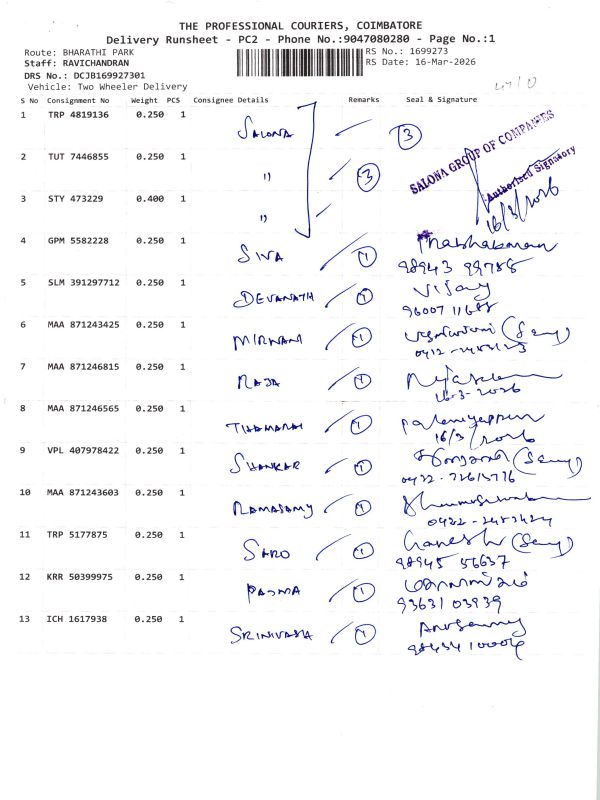 THE PROFESSIONAL COURIERS, COIMBATORE
Delivery Runsheet - PC2 - Phone No.:9047080280 - Page No.:1
Route: BHARATHI PARK RS No.: 1699273
Staff: RAVICHANDRAN RS Date: 16-Mar-2026
DRS No.: DCJB169927301
Vehicle: Two Wheeler Delivery
S No Consignment No Weight PCS Consignee Details Remarks Seal & Signature
1 TRP 4819136 0.250 1 SALONA 3
SALONA GROUP OF COMPANIES
2 TUT 7446855 0.250 1 " 3
Authorised Signatory
3 STY 473229 0.400 1 "
16/3/2026
4 GPM 5582228 0.250 1 SIVA 1 Prabhakaran
98943 99788
5 SLM 391297712 0.250 1 DEVANATH 1 Vijay
96007 11688
6 MAA 871243425 0.250 1 MIRWANI 1
7 MAA 871246815 0.250 1 RAJA 1
16-3-2026
8 MAA 871246565 0.250 1 THAMARAI 1 Palaniyappan
16/3/2026
9 VPL 407978422 0.250 1 SHANKAR 1
10 MAA 871243603 0.250 1 RAMASAMY 1
11 TRP 5177875 0.250 1 SARO 1 Ganesh
98945 56637
12 KRR 50399975 0.250 1 PADMA 1
93631 03939
13 ICH 1617938 0.250 1 SRINIVASA 1